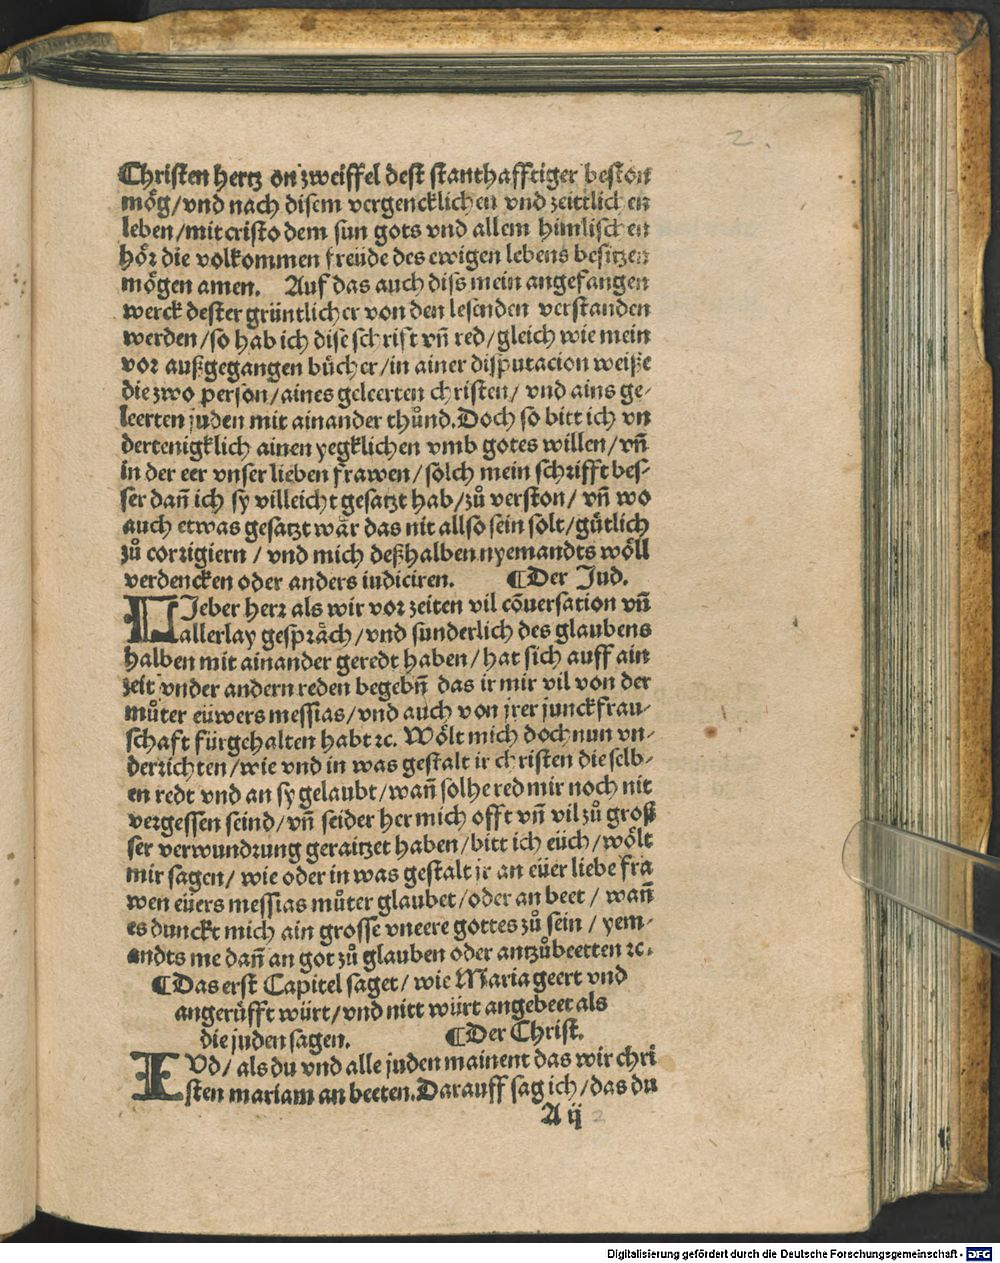 2.
Christen hertz on zweiffel dest stanthafftiger beston
mög/vnd nach disem vergencklichen vnd zeittlichen
leben/mit cristo dem sun gots vnd allem himlischen
hör die volkommen freüde des ewigen lebens besitzen
mögen amen. Auf das auch diss mein angefangen
werck dester grüntlicher von den lesenden verstanden
werden/so hab ich dise schrift vn̄ red/gleich wie mein
vor außgegangen bücher/in ainer disputacion weiße
die zwo person/aines geleerten christen/ vnd ains ge-
leerten juden mit ainander thůnd. Doch so bitt ich vn
dertenigklich ainen yegklichen vmb gotes willen/vn̄
in der eer vnser lieben frawen/solch mein schrifft bes-
ser dan̄ ich sy villeicht gesatzt hab/zů verston/ vn̄ wo
auch etwas gesatzt wår das nit allso sein solt/gůtlich
zů corrigiern / vnd mich deßhalben nyemandts wöll
verdencken oder anders iudiciren. ¶Der Jud.
LJeber herr als wir vor zeiten vil cōuersation vn̄
allerlay gespräch/vnd sunderlich des glaubens
halben mit ainander geredt haben/hat sich auff ain
zeit vnder andern reden begebn̄ das ir mir vil von der
můter eüwers messias/vnd auch von jrer junckfrau-
schaft fürgehalten habt ꝛc. Wölt mich doch nun vn-
derrichten/wie vnd in was gestalt ir christen die selb-
en redt vnd an sy gelaubt/wan̄ solhe red mir noch nit
vergessen seind/vn̄ seider her mich offt vn̄ vil zů groß
ser verwundrung geraitzet haben/bitt ich eüch/wölt
mir sagen/ wie oder in was gestalt jr an eüer liebe fra
wen eüers messias můter glaubet/oder an beet / wan̄
es dunckt mich ain grosse vneere gottes zů sein / yem-
andts me dan̄ an got zů glauben oder antzůbeetten ꝛc.
¶Das erst Capitel saget/ wie Maria geert vnd
angerüfft würt/vnd nitt würt angebeet als
die juden sagen. ¶Der Christ.
IVd/ als du vnd alle juden mainent das wir chri
sten mariam an beeten. Darauff sag ich/das du
A ij 2
Digitalisierung gefördert durch die Deutsche Forschungsgemeinschaft - DFG